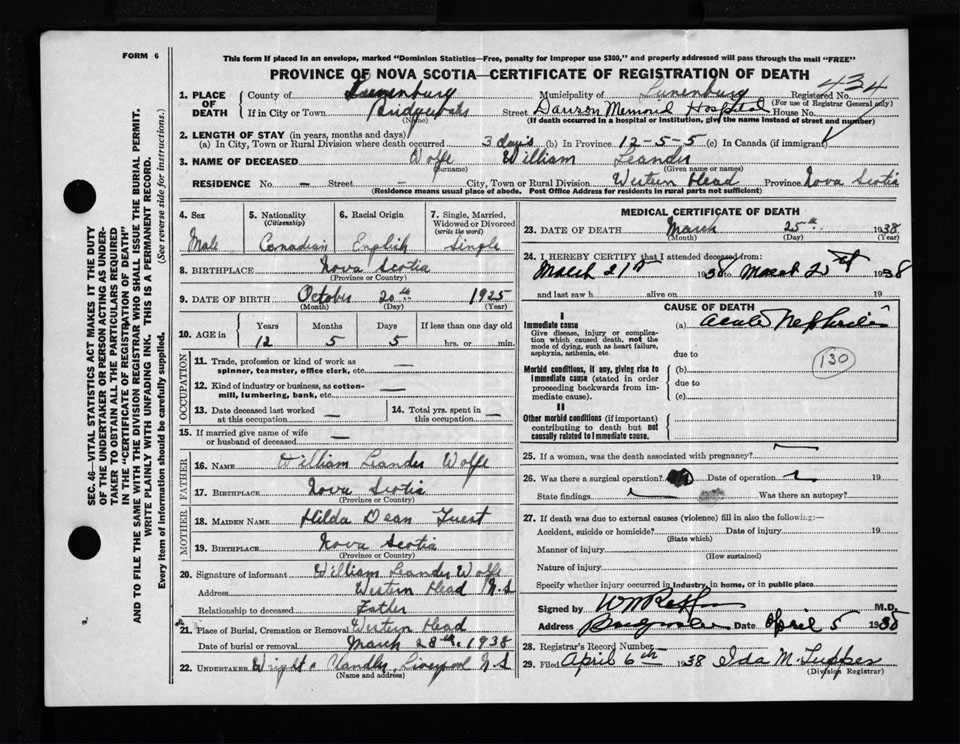 FORM 6
This form if placed in an envelope, marked "Dominion Statistics—Free, penalty for improper use $300," and properly addressed will pass through the mail "FREE"
PROVINCE OF NOVA SCOTIA—CERTIFICATE OF REGISTRATION OF DEATH
434
1. PLACE OF DEATH County of Lunenburg Municipality of Lunenburg Registered No.
(For use of Registrar General only)
If in City or Town Bridgewater Street Dawson Memorial Hospital House No.
(Name) (If death occurred in a hospital or institution, give the name instead of street and number)
2. LENGTH OF STAY (in years, months and days)
a. In City, Town or Rural Division where death occurred 3 days (b) In Province 12-5-5 (c) In Canada (if immigrant)
3. NAME OF DECEASED Wolfe William Leander
(Surname) (Given name or names)
RESIDENCE No. — Street - City, Town or Rural Division Western Head Province Nova Scotia
(Residence means usual place of abode. Post Office Address for residents in rural parts not sufficient)
SEC. 46—VITAL STATISTICS ACT MAKES IT THE DUTY
OF THE UNDERTAKER OR PERSON ACTING AS UNDER-
TAKER TO OBTAIN ALL THE PARTICULARS REQUIRED
IN THE "CERTIFICATE OF REGISTRATION OF DEATH"
AND TO FILE THE SAME WITH THE DIVISION REGISTRAR WHO SHALL ISSUE THE BURIAL PERMIT.
WRITE PLAINLY WITH UNFADING INK. THIS IS A PERMANENT RECORD.
Every item of information should be carefully supplied. (See reverse side for instructions.)
4. Sex 5. Nationality (Citizenship) 6. Racial Origin 7. Single, Married, Widowed or Divorced (write the word)
Male Canadian English Single
8. BIRTHPLACE Nova Scotia
(Province or Country)
9. DATE OF BIRTH October 20th 1925
(Month) (Day) (Year)
10. AGE in Years Months Days If less than one day old
12 5 5 hrs. or min.
OCCUPATION
11. Trade, profession or kind of work as spinner, teamster, office clerk, etc. —
12. Kind of industry or business, as cotton-mill, lumbering, bank, etc. —
13. Date deceased last worked at this occupation — 14. Total yrs. spent in this occupation —
15. If married give name of wife or husband of deceased —
FATHER
16. NAME William Leander Wolfe
17. BIRTHPLACE Nova Scotia
(Province or Country)
MOTHER
18. MAIDEN NAME Hilda Dean
19. BIRTHPLACE Nova Scotia
(Province or Country)
20. Signature of informant William Leander Wolfe
Address Western Head N.S
Relationship to deceased Father
21. Place of Burial, Cremation or Removal Western Head
Date of burial or removal March 28th 1938
22. UNDERTAKER Wright Liverpool N.S
(Name and address)
MEDICAL CERTIFICATE OF DEATH
23. DATE OF DEATH March 25th 1938
(Month) (Day) (Year)
24. I HEREBY CERTIFY that I attended deceased from:
March 21st 1938 to March 1938
and last saw h alive on 19
CAUSE OF DEATH
I
Immediate cause (a) Acute Nephritis
Give disease, injury or complication which caused death, not the mode of dying, such as heart failure, asphyxia, asthenia, etc.
due to
130
Morbid conditions, if any, giving rise to immediate cause (stated in order proceeding backwards from immediate cause).
(b)
due to
(c)
II
Other morbid conditions (if important) contributing to death but not causally related to immediate cause.
25. If a woman, was the death associated with pregnancy?
26. Was there a surgical operation? Date of operation 19
State findings Was there an autopsy?
27. If death was due to external causes (violence) fill in also the following:—
Accident, suicide or homicide? Date of injury 19
(State which)
Manner of injury
(How sustained)
Nature of injury
Specify whether injury occurred in industry, in home, or in public place
Signed by M.D.
Address Date April 5 1938
28. Registrar's Record Number
29. Filed April 6th 1938 Ida M. Tupper
(Division Registrar)